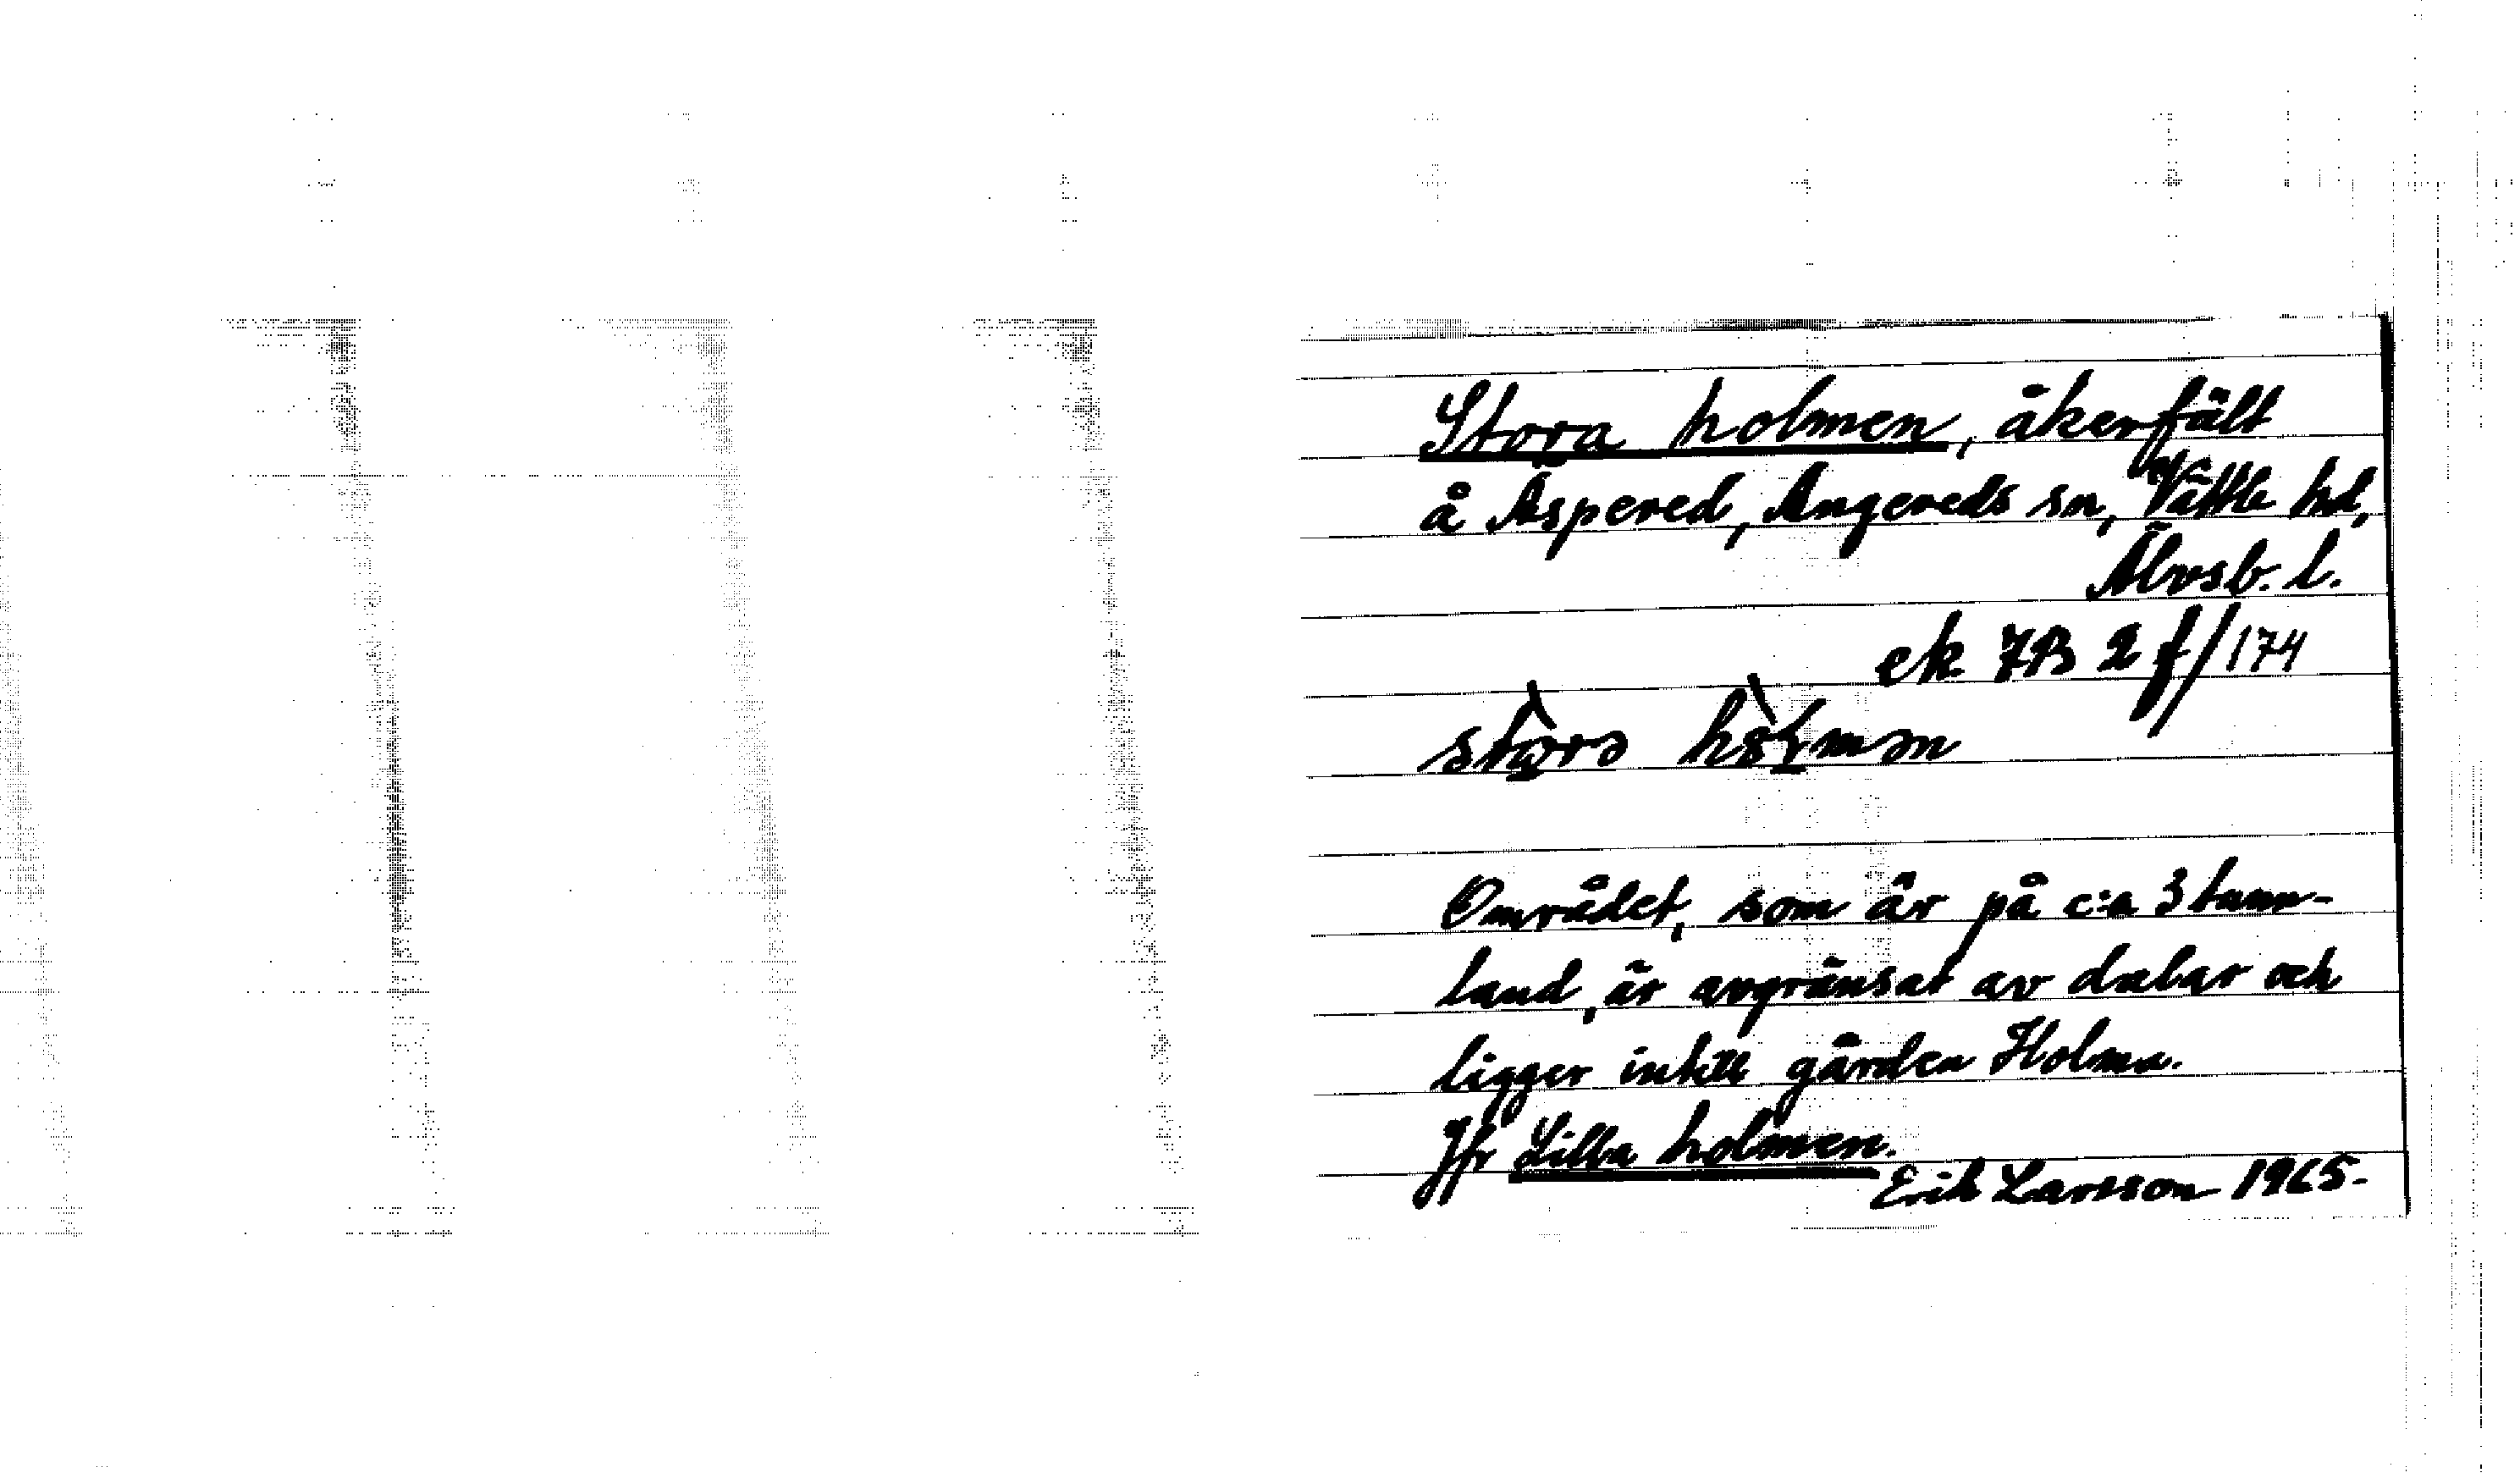 Stora holmen, åkerfält
å Aspered, Angereds sn, Vättle hd,
Älvsb. l.
ek 7B 2 f/174
Området, som är på c:a 3 tunn-
land, är avgränsat av dalar och
ligger intill gården Holma.
Jfr Lilla holmen.
Erik Larsson 1965.